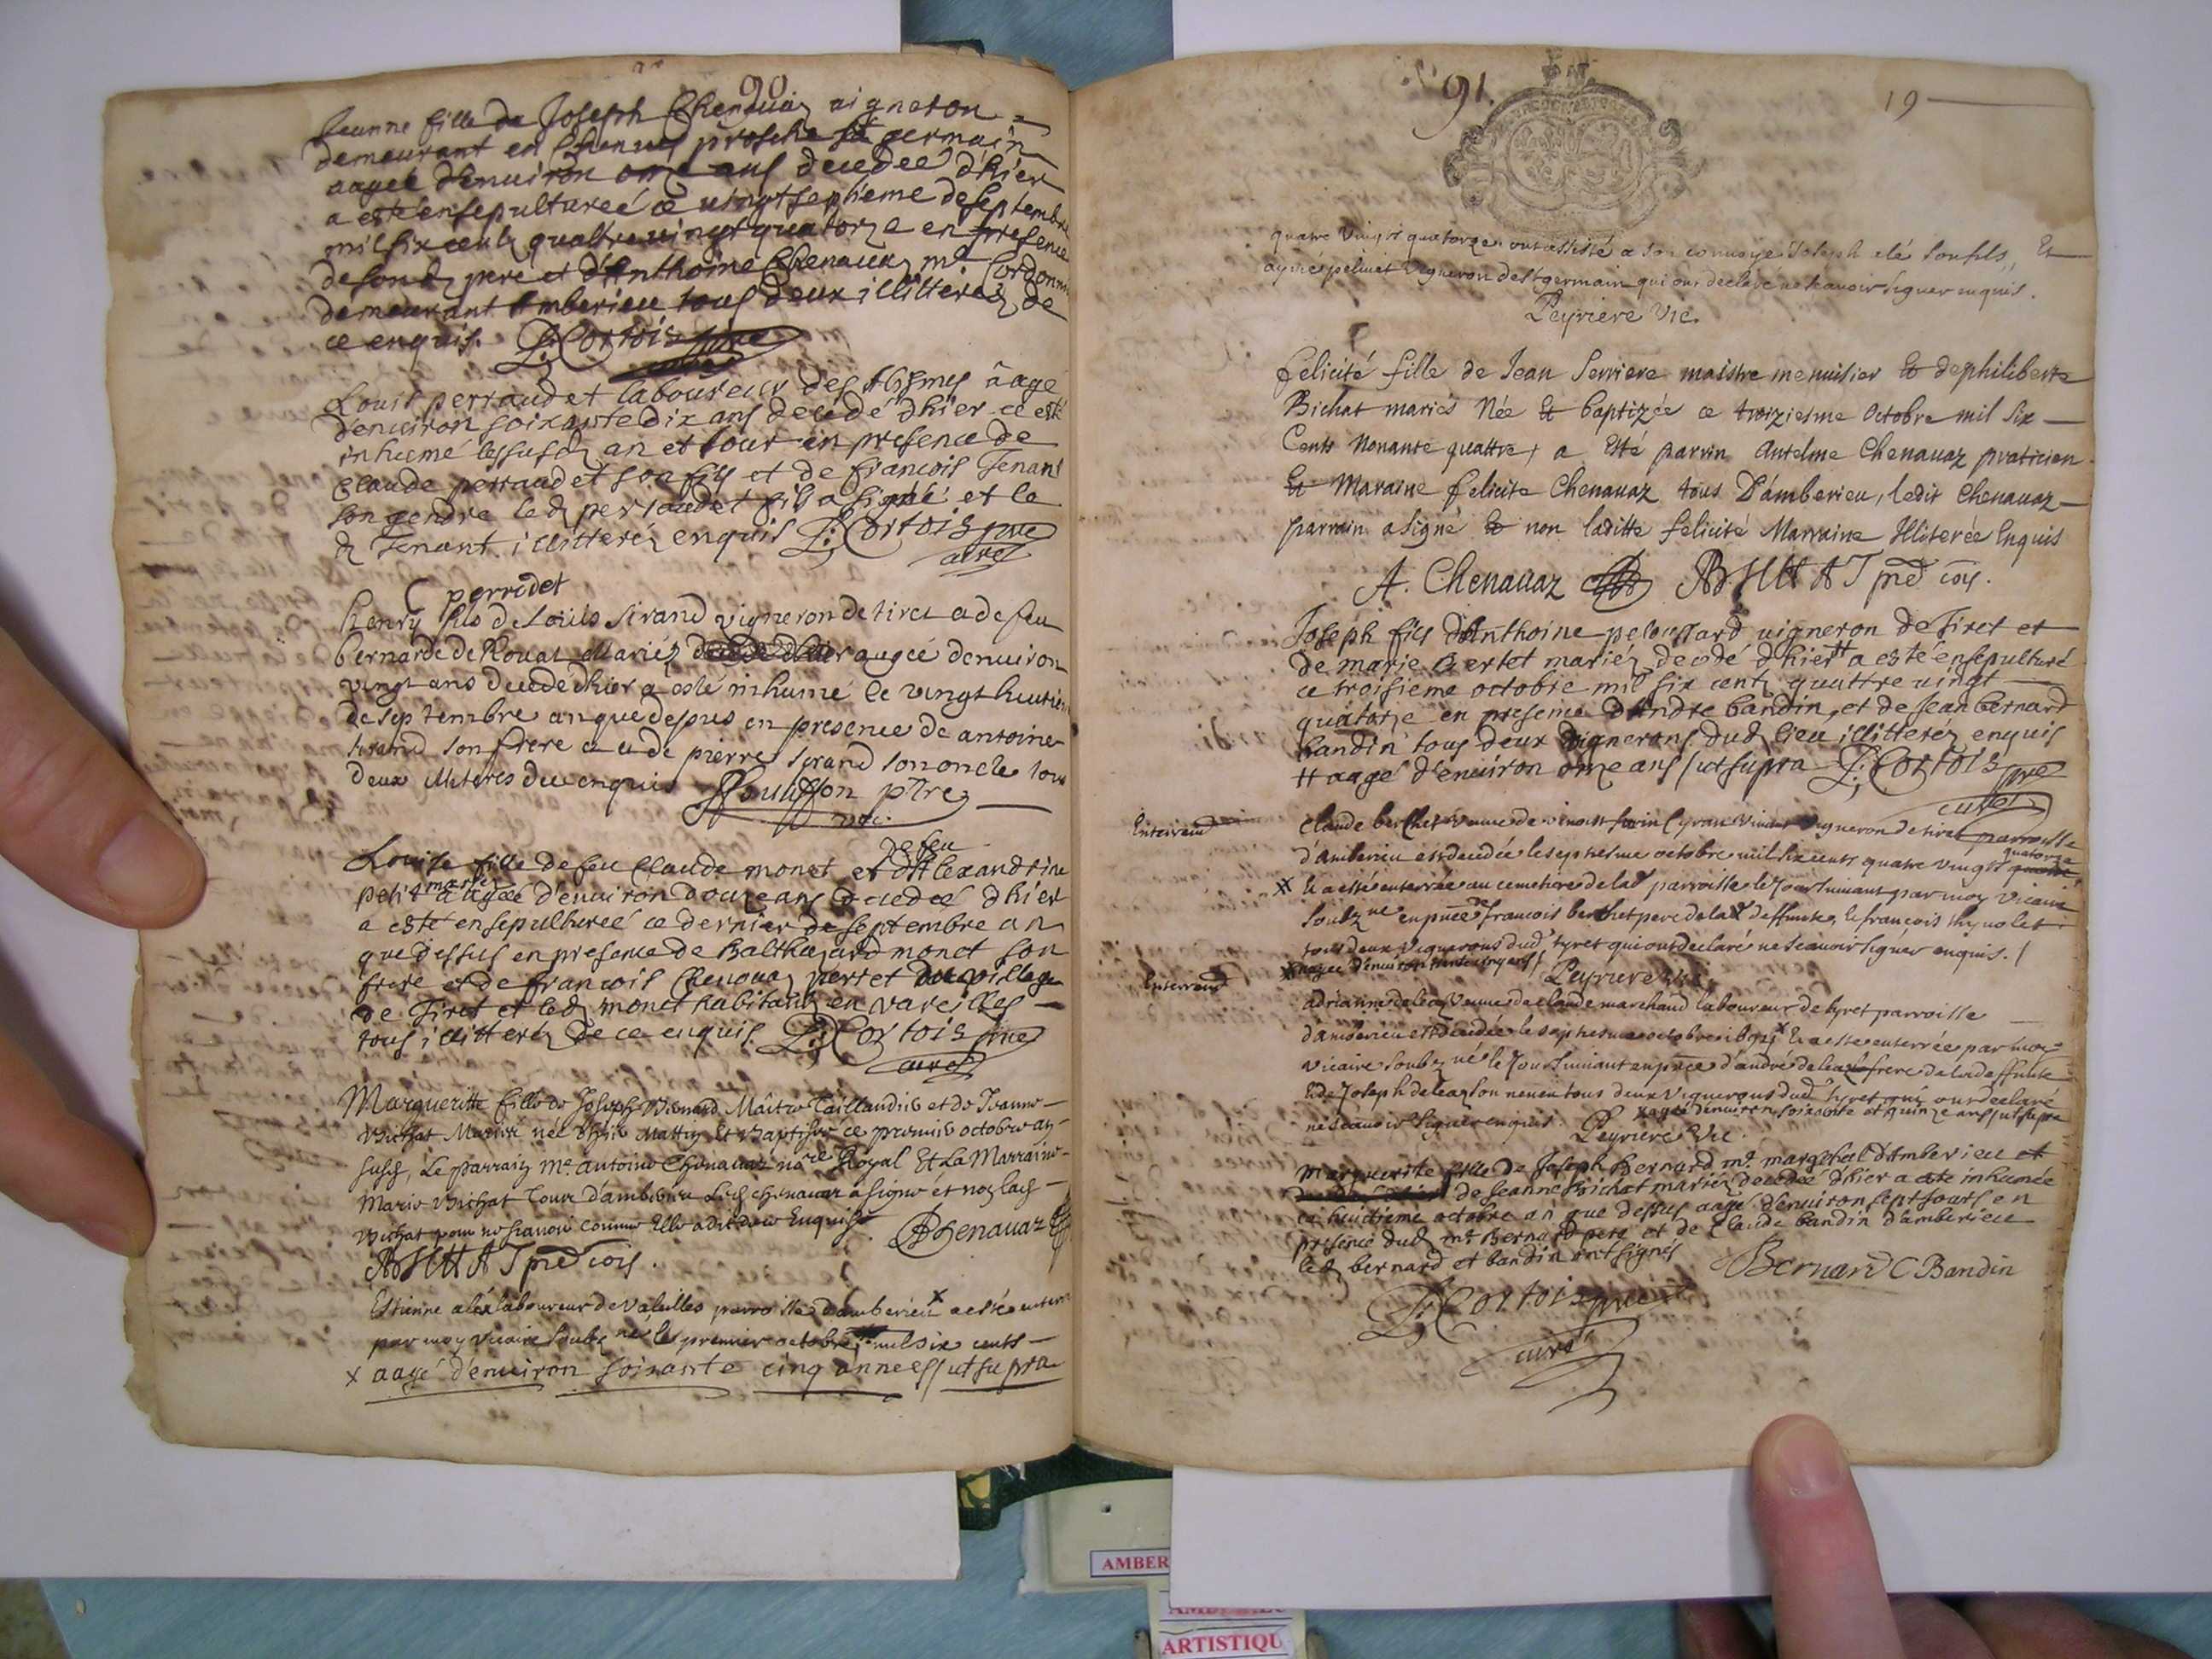 90
Jeanne fille de Joseph Chenavaz vigneron
demeurant en Chenues prosche St germain
aagee d'enuiron onze ans decedee d'hier
a esté ensepultureé ce vingtseptieme de septembre
mil six centz quattre vingt quatorze en presence
de sond pere et d'Anthoine Chenavaz me Cordonnier
demeurant Amberieu tous deux illitterez de
ce enquis. Cortois pre
curé
Louis perraudet laboureur des Allymes aage
d'enuiron soixante dix ans decedé d'hier a esté
inhumé les susd an et jour en presence de
Claude perraudet son fils et de francois Tenant
son gendre led perraudet fils a signé et le
d Tenant illitteréz enquis Cortois pre
curé
C perrodet
henry fils de Louis sirand vigneron de tiret a de feu
bernarde de Rouat Mariéz augeé denuiron
vingt ans decede d'hier a esté inhumé le vingt huitie
de septembre an que depus en presence de antoine
sirand son frere et de pierre sirand son oncle tous
deux illiteres de ce enquis ptre
vic.
Louise fille de feu Claude monet et de feu Alexandrine
petit mariez aagée d'enuiron douze ans decedeé d'hier
a esté ensepultureé ce dernier de septembre an
que dessus en presence de Balthazard monet son
frere et de francois Chenavaz perret du village
de Tiret et led monet habitantz en vareilles
tous illitteréz de ce enquis. Cortois pre
curé
Margueritte fille de Joseph Bernard Maître Taillandie et de Jeanne
Bichat Mariés née d'hier Mattin Et Baptisée ce premie octobre an
susd, Le parrain Me antoine Chenavaz nore Royal Et La Marraine
Marie Bichat Tour d'amberieu Led chenavaz a signé et non lad
Bichat pour ne scavoir comme Elle a dit de ce Enquise. Chenavaz
ABICHAT pre
Estienne alex laboureur de Vaseilles parroisse d'amberieu x a esté enterré
par moy Vicaire soubz né le premier octobre mil six cents
x aagé d'enuiron soixante cinq annees / ut supra
91.
19
quatre vingts quatorze ont assisté a son convoye Joseph alé son fils, Et
aymé peliuet Vigneron de St germain qui ont declaré ne scauoir signer enquis.
Peyriere Vic.
felicité fille de Jean Serriere maistre menuisier Et de philiberte
Bichat mariés Née Et baptizée ce troiziesme Octobre mil Six
Cents Nonante quattre, a Esté parrin Antelme Chenavaz praticien
Et Maraine felicite Chenavaz tous D'amberieu, ledit Chenavaz
parrain a signé Et non laditte felicité Marraine Illiterée Enquis
A. Chenavaz ABICHAT pre
Joseph fils d'Anthoine peloussard vigneron de Tiret et
de marie Bertet mariéz decedé d'hier # a esté ensepulturé
ce troisieme octobre mil six centz quattre vingt
quatorze en presence d'Andre bandin, et de Jean bernard
bandin tous deux vignerons dud lieu illitteréz enquis
# aagé d'enuiron onze ans / ut supra Cortois pre
curé
Enterrem
Claude berthet Veuue de Vigneron de tiret parroisse
d'amberieu est decedée le septiesme octobre mil six cents quatre vingts quatorze
# Et a esté enterrée au cemetiere de la d parroisse le Jour suiuant par moy Vicaire
soubz né en pnce de francois berthet pere de la d deffunte, Et francois
tous deux Vignerons dud tyret qui ont declaré ne scauoir signer enquis. /
Peyriere Vic
Enterrem
adrianne Veuue de Claude marchand laboureur de tyret parroisse
d'amberieu est decedée le septiesme octobre x Et a esté enterrée par moy
Vicaire soubz né le Jour suiuant en pnce d'andré frere de la deffunte
Et de Joseph son neueu tous deux Vignerons dud tyret qui ont declaré
ne scauoir signer enquis. x agée d'enuiron soixante et quinze ans / ut supra
Peyriere Vic.
Marguerite fille de Joseph Bernard me mareschal d'Amberieu et
de Jeanne Bichat mariéz decedée d'hier a esté inhumée
ce huictieme octobre an que dessus aagé d'enuiron sept jours en
presence dud me Bernard pere et de Claude bandin d'amberieu
led bernard et bandin ont signés Bernard C Bandin
Cortois pre
curé
AMBER
ARTISTIQU